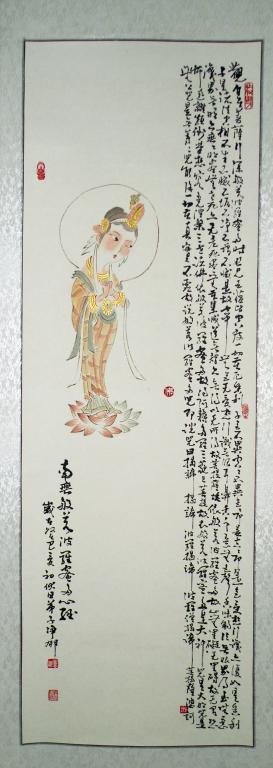 觀自在菩薩行深般若波羅蜜多時照見五蘊皆空度一切苦厄舍利子色不異空空不異色色即是空空即是色受想行識亦復如是舍利
子是諸法空相不生不滅不垢不淨不增不減是故空中無色無受想行識無眼耳鼻舌身意無色聲香味觸法無眼界乃至無意
識界無無明亦無無明盡乃至無老死亦無老死盡無苦集滅道無智亦無得以無所得故菩提薩埵依般若波羅蜜多故心無罣礙無罣礙故無有恐
怖遠離顛倒夢想究竟涅槃三世諸佛依般若波羅蜜多故得阿耨多羅三藐三菩提故知般若波羅蜜多是大神咒是大明咒是
無上咒是無等等咒能除一切苦真實不虛故說般若波羅蜜多咒即說咒曰揭諦 揭諦 波羅揭諦 波羅僧揭諦 菩提薩婆訶
南無般若波羅蜜多心經
歲在 初 日弟子淨